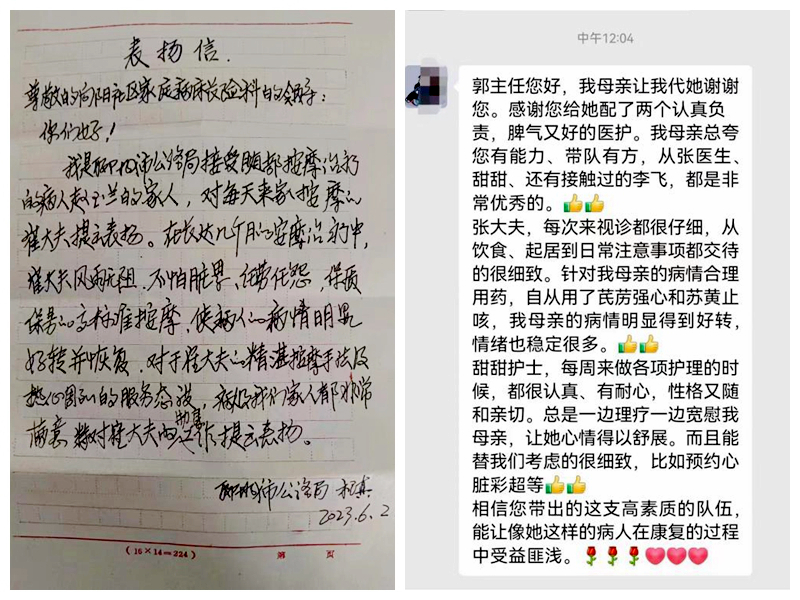 表扬信.
尊敬的向阳社区家庭病床长险科的领导:
你们好!
我是市公路局接受腹部按摩治疗
的病人赵玉兰的家人,对每天来家按摩的
崔大夫提出表扬。在长达几个月的按摩治疗中,
崔大夫风雨无阻.不怕脏累、任劳任怨,保质
保量的高标准按摩,使病人的病情明显
好转并恢复.对于崔大夫的精湛按摩手法及
热心周到的服务态度,我们家人都非常
满意 特对崔大夫的工作提出表扬。
市公路局
2023.6.2
(16×14=224) 第 页
中午12:04
郭主任您好,我母亲让我代她谢谢
您。感谢您给她配了两个认真负
责,脾气又好的医护。我母亲总夸
您有能力、带队有方,从张医生、
甜甜、还有接触过的李飞,都是非
常优秀的。👍👍
张大夫,每次来视诊都很仔细,从
饮食、起居到日常注意事项都交待
的很细致。针对我母亲的病情合理
用药,自从用了芪苈强心和苏黄止
咳,我母亲的病情明显得到好转,
情绪也稳定很多。👍👍
甜甜护士,每周来做各项护理的时
候,都很认真、有耐心,性格又随
和亲切。总是一边理疗一边宽慰我
母亲,让她心情得以舒展。而且能
替我们考虑的很细致,比如预约心
脏彩超等👍👍
相信您带出的这支高素质的队伍,
能让像她这样的病人在康复的过程
中受益匪浅。🌹🌹🌹❤❤❤